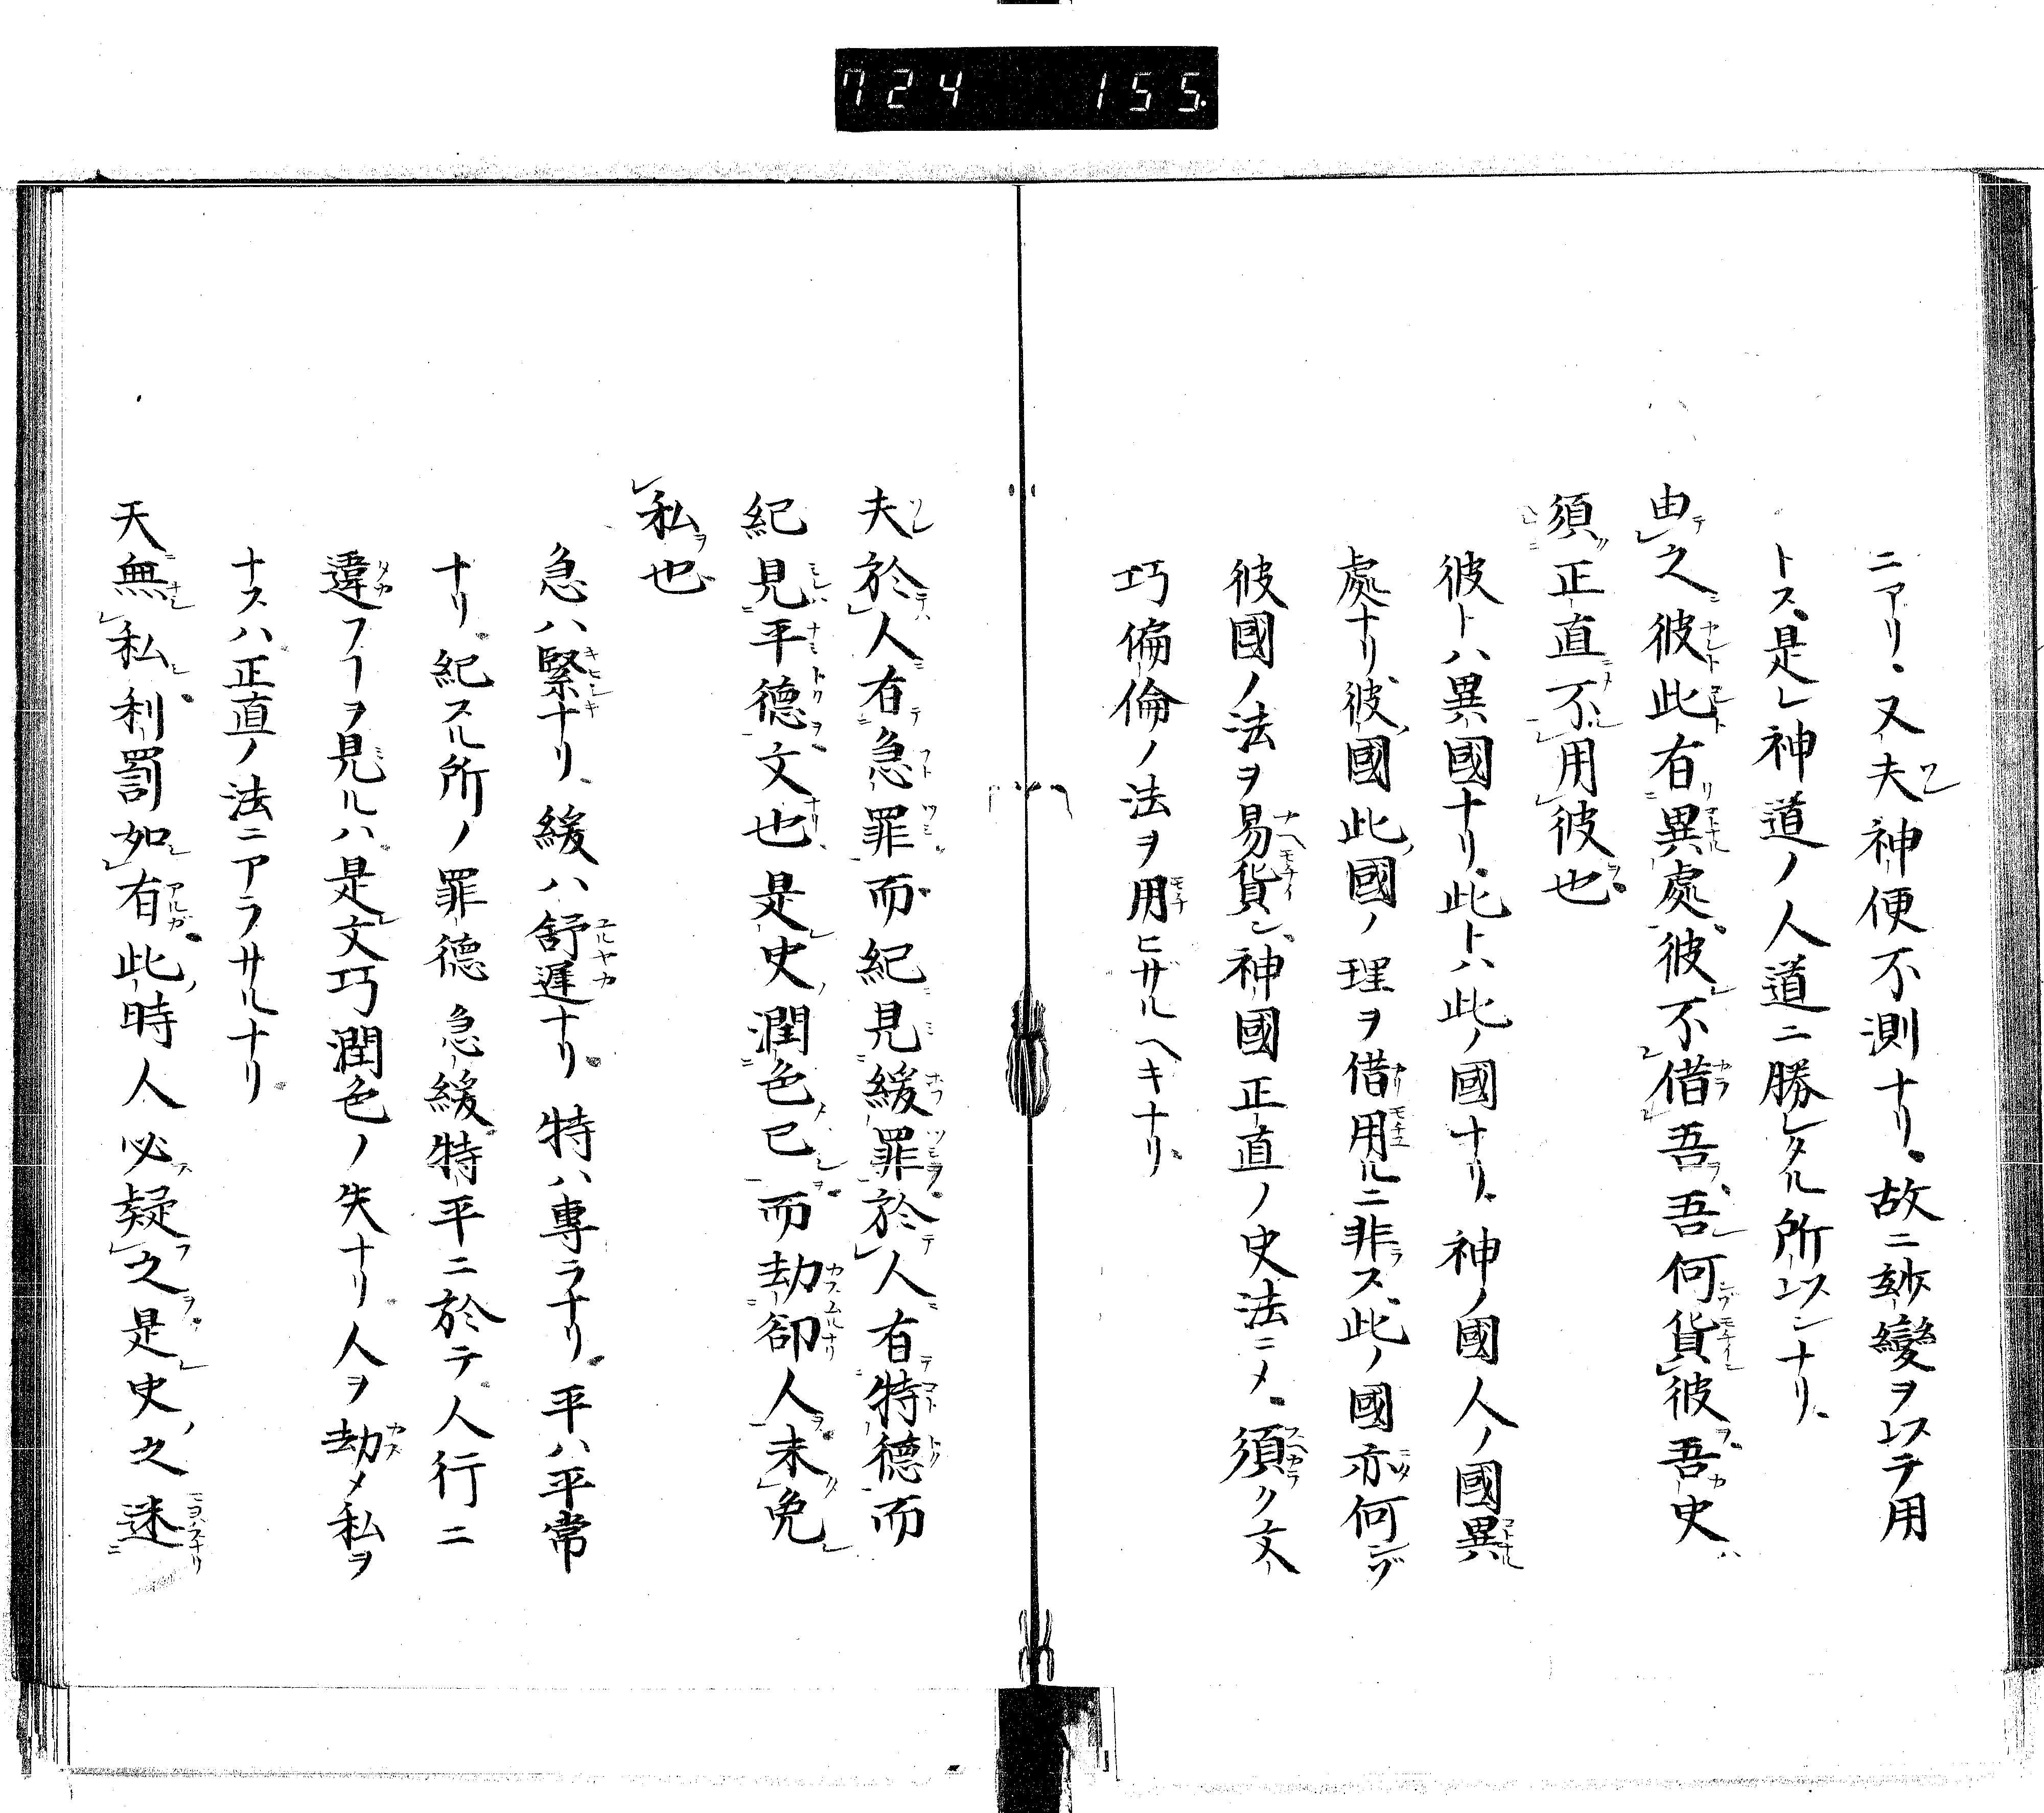 724 155
ニアリ又夫神便不測ナリ故ニ玅變ヲ以テ用
トス是レ神道ノ人道ニ勝レタル所以ンナリ
由之彼此有異處彼不借吾吾何貨彼吾史
須正直不用彼也
彼トハ異國ナリ此トハ此ノ國ナリ神ノ國人ノ國異
處ナリ彼國此國ノ理ヲ借用ルニ非ス此ノ國亦何ンゾ
彼國ノ法ヲ易貨ン神國正直ノ史法ニメ須ク文
巧偏倫ノ法ヲ用ヒザルヘキナリ
夫於人有急罪而紀見緩罪於人有特德而
紀見平德文也是史潤色已而劫卻人未免
私也
急ハ緊ナリ緩ハ舒遲ナリ特ハ專ラナリ平ハ平常
ナリ紀スル所ノ罪德急緩特平ニ於テ人行ニ
違フヿヲ見ルハ是文巧潤色ノ失ナリ人ヲ劫メ私ヲ
ナスハ正直ノ法ニアラサルナリ
天無私利罰如有此時人必疑之是史之迷